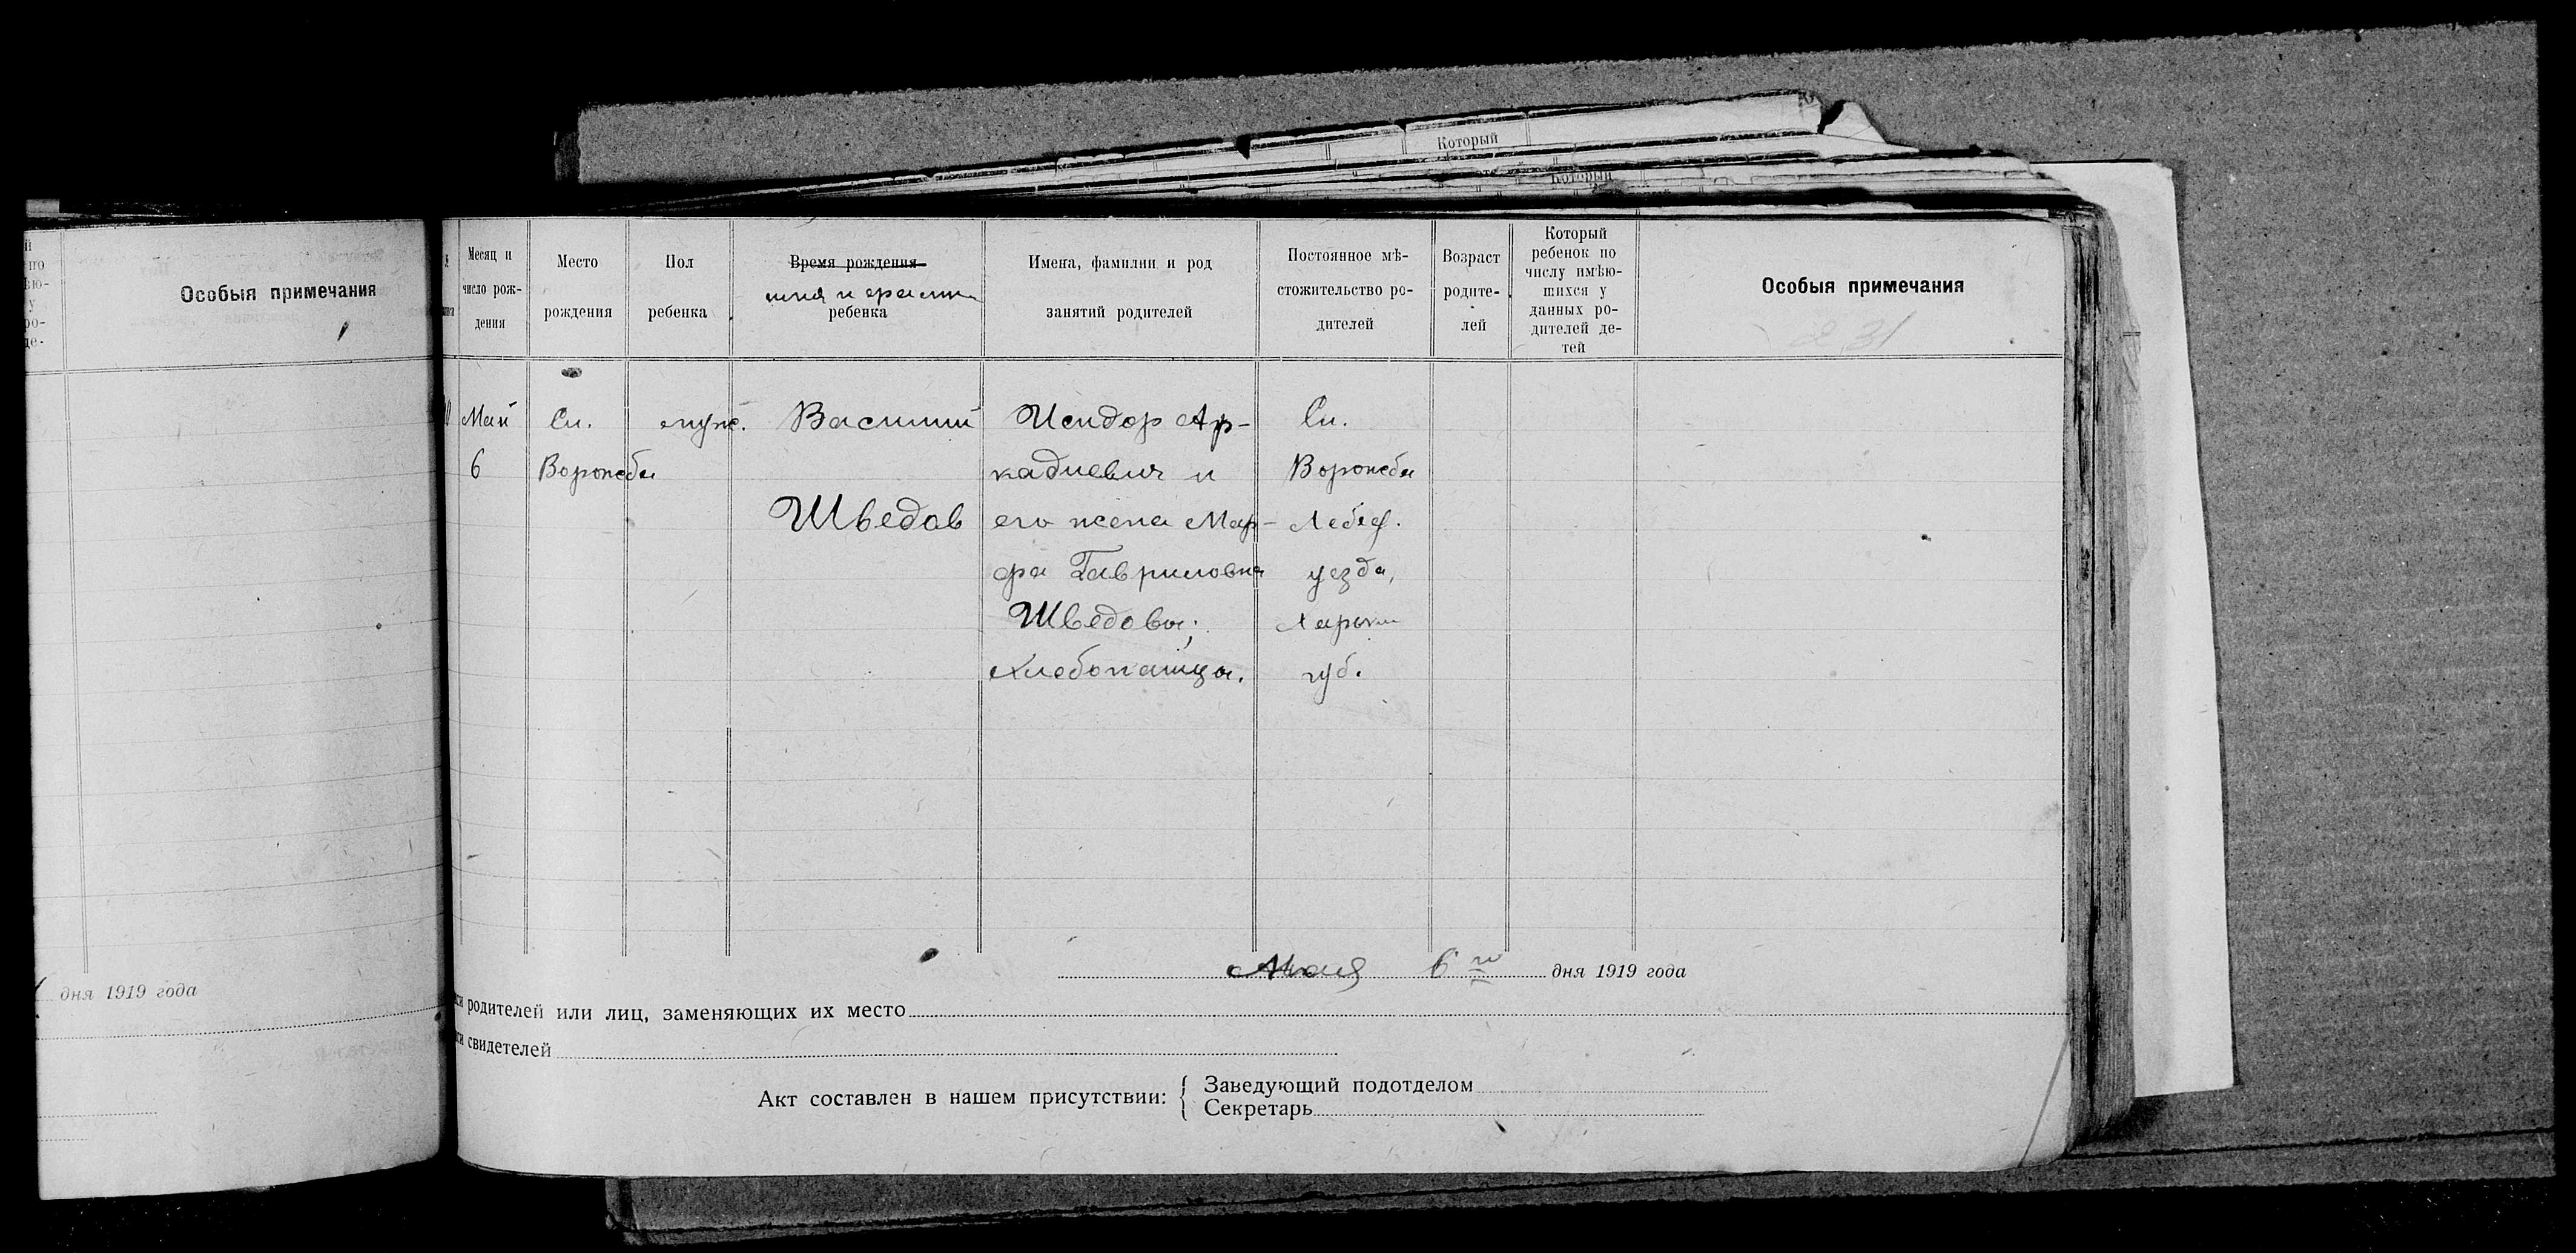 Который
Который
Особыя примечания
дня 1919 года
Месяц и
число рож-
дения
Место
рождения
Пол
ребенка
Время рождения
имя и фамил.
ребенка
Имена, фамилии и род
занятий родителей
Постоянное мѣ-
стожительство ро-
дителей
Возраст
родите-
лей
Который
ребенок по
числу имѣю-
шихся у
данных ро-
дителей де-
тей
Особыя примечания
231
Май
6
Сл.
Ворожба
муж.
Василий
Шведов
Исидор Ар-
кадиевич и
его жена Мар-
фа Гавриловна
Шведовы;
хлебопашцы.
Сл.
Ворожба
Лебед.
уезда,
Харьк.
губ.
Мая 6го дня 1919 года
родителей или лиц, заменяющих их место
свидетелей
Акт составлен в нашем присутствии:
Заведующий подотделом
Секретарь